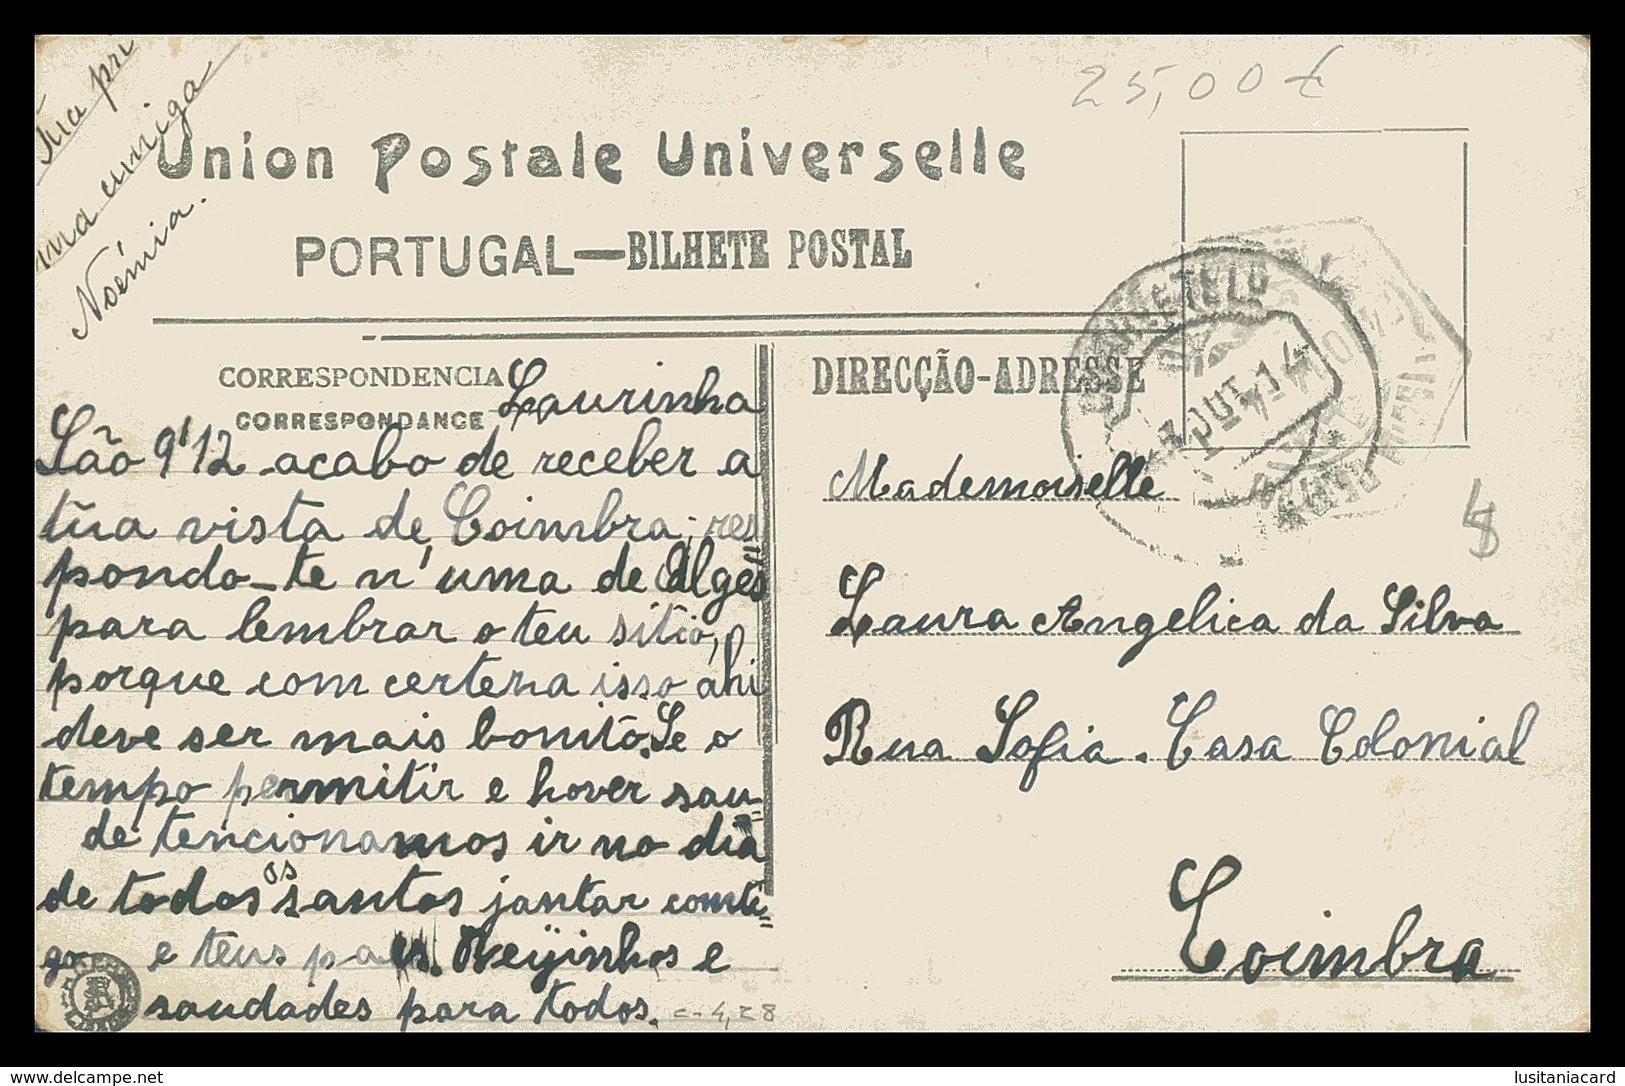 25,00 €
Tua pri
ma amiga
Noémia.
Union Postale Universelle
PORTUGAL—BILHETE POSTAL
CORRESPONDENCIA
CORRESPONDANCE
DIRECÇÃO-ADRESSE
Laurinha
São 9 1/2 acabo de receber a
tua vista de Coimbra; res
pondo-te n'uma de Algés
para lembrar o teu sitio,
porque com certeza isso ahi
deve ser mais bonito. Se o
tempo permitir e hover sau=
de tencionamos ir no dia
de todos os santos jantar comti=
go e teus paes. Beijinhos e
saudades para todos.
Mademoiselle
Laura Angelica da Silva
Rua Sofia. Casa Colonial
Coimbra
OUT 14
delcampe.net
lusitaniacard